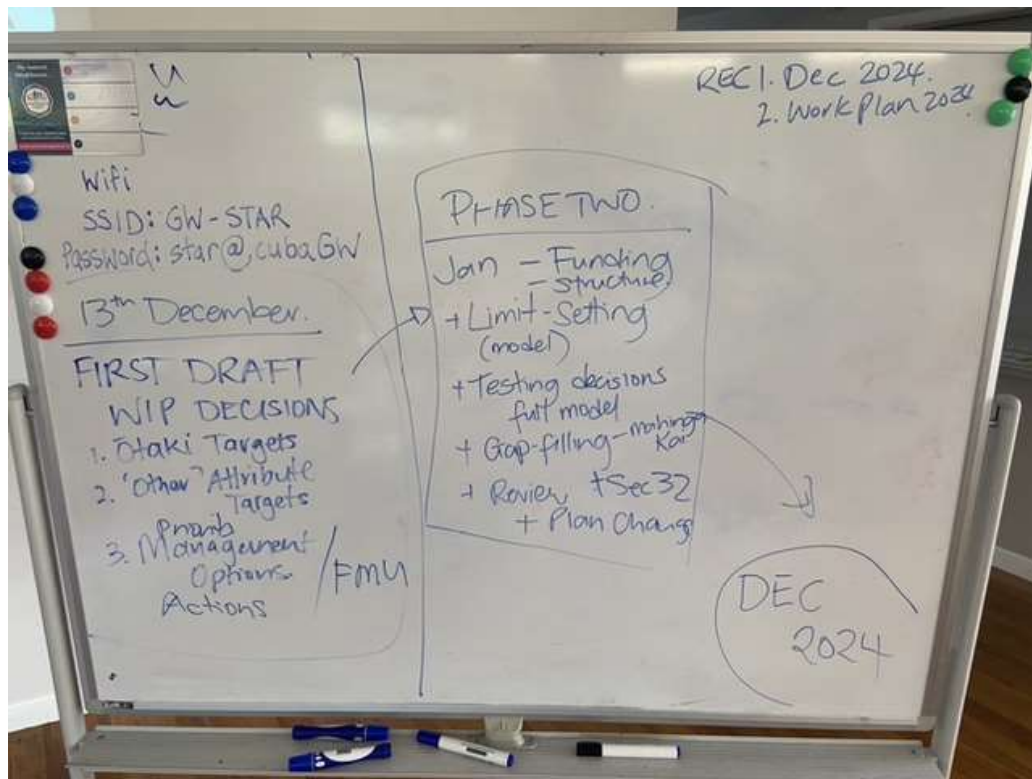 REC 1. Dec 2024.
2. Work Plan 2024
Wifi
SSID: GW-STAR
Password: star@cubaGW
13th December.
FIRST DRAFT
WIP DECISIONS
1. Ōtaki Targets
2. "Other" Attribute
Targets
3. Management
Options
Actions
/FMU
PHASE TWO.
Jan – Funding
– structure
+ Limit-Setting
(model)
+ Testing decisions
full model
+ Gap-filling – mahinga
Kai
+ Review + Sec 32
+ Plan Change
DEC
2024